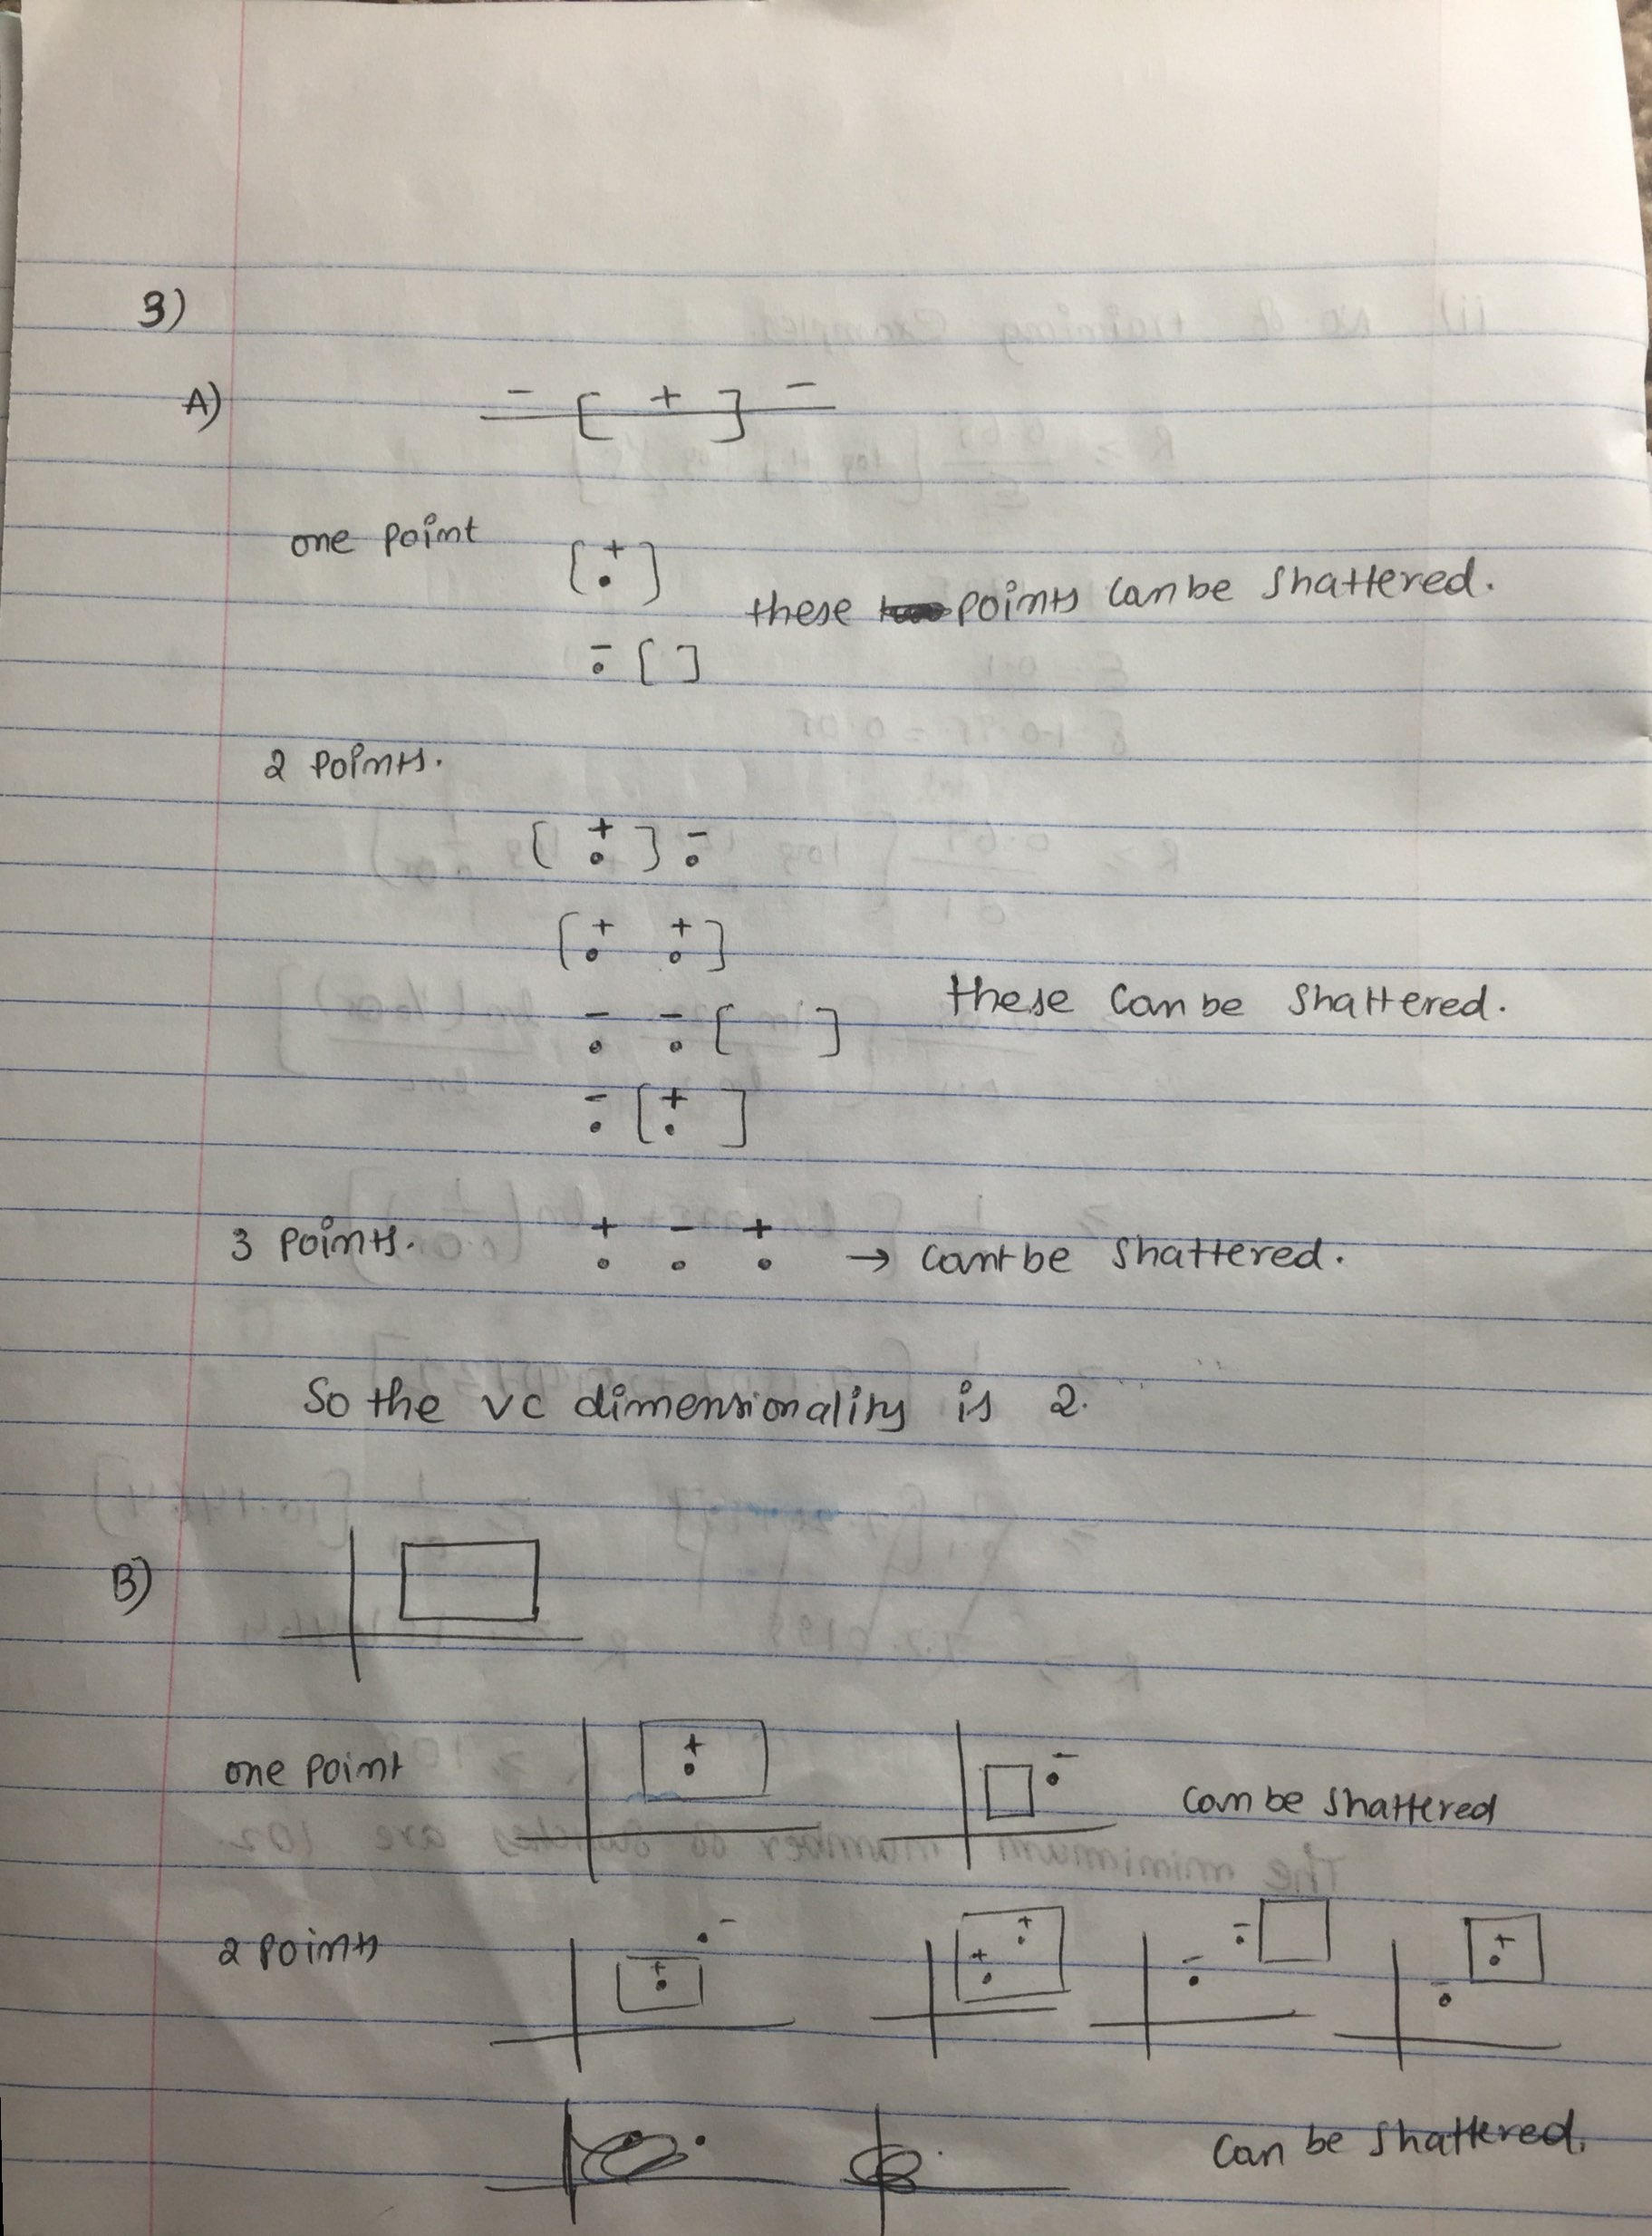 3)
A) - [ + ] -
one point [ + ]
these points can be shattered.
- [ ]
2 points.
[ + ] -
[ + + ]
- - [ ] these can be shattered.
- [ + ]
3 points. + - + → cant be shattered.
So the vc dimensionality is 2.
B)
one point + - can be shattered
2 points + - + + - - - +
can be shattered.